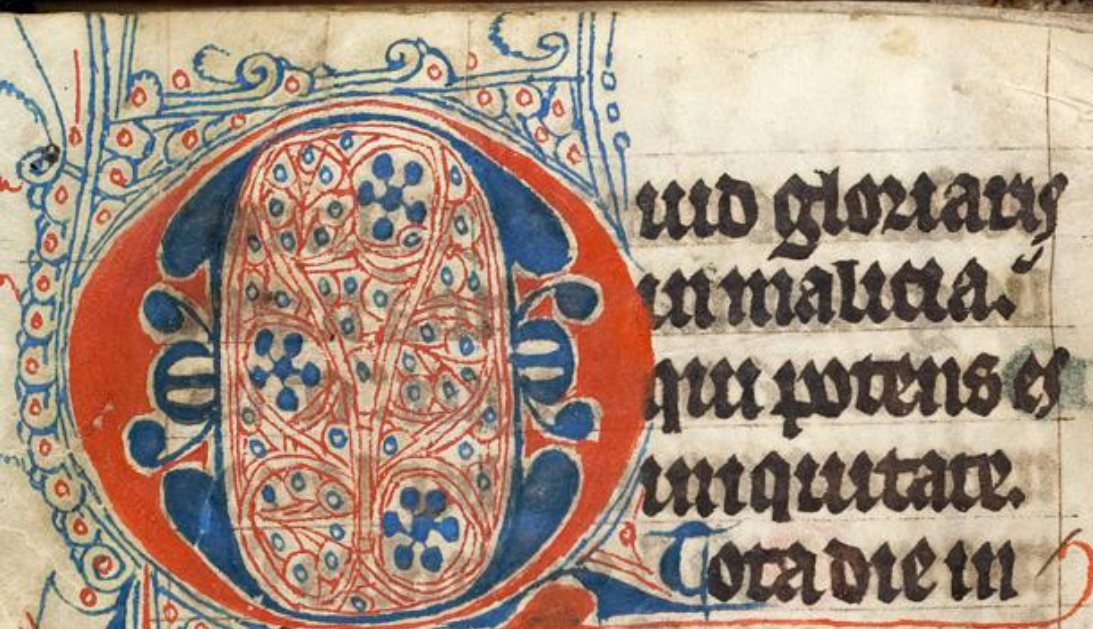 Quid gloriaris
in malicia.
qui potens es
iniquitate.
Tota die in